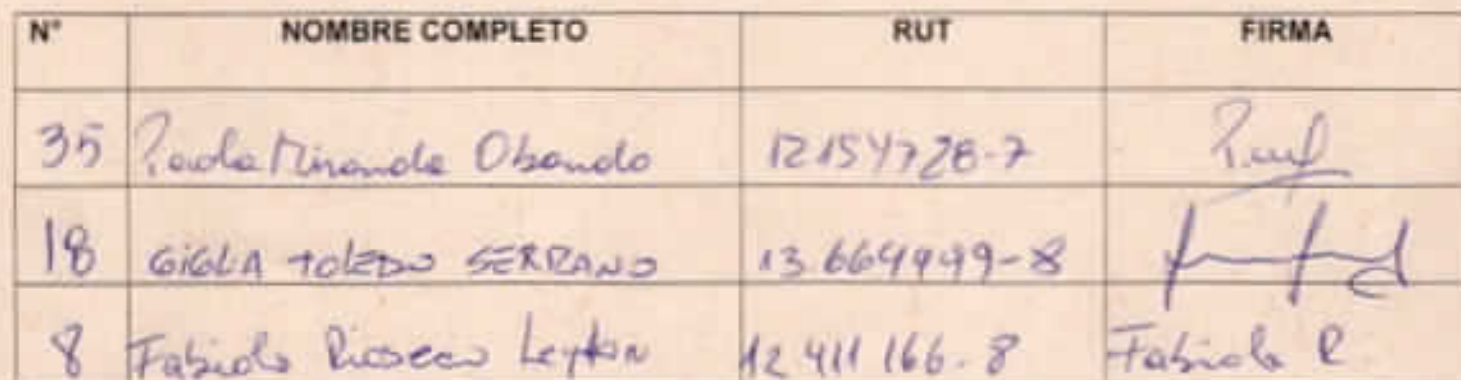 N° NOMBRE COMPLETO RUT FIRMA
35 Paola Miranda Obando 12154728-7
18 GIGLA TOLEDO SERRANO 13.664999-8
8 Fabiola Rioseco Leyton 12 411 166-8 Fabiola R